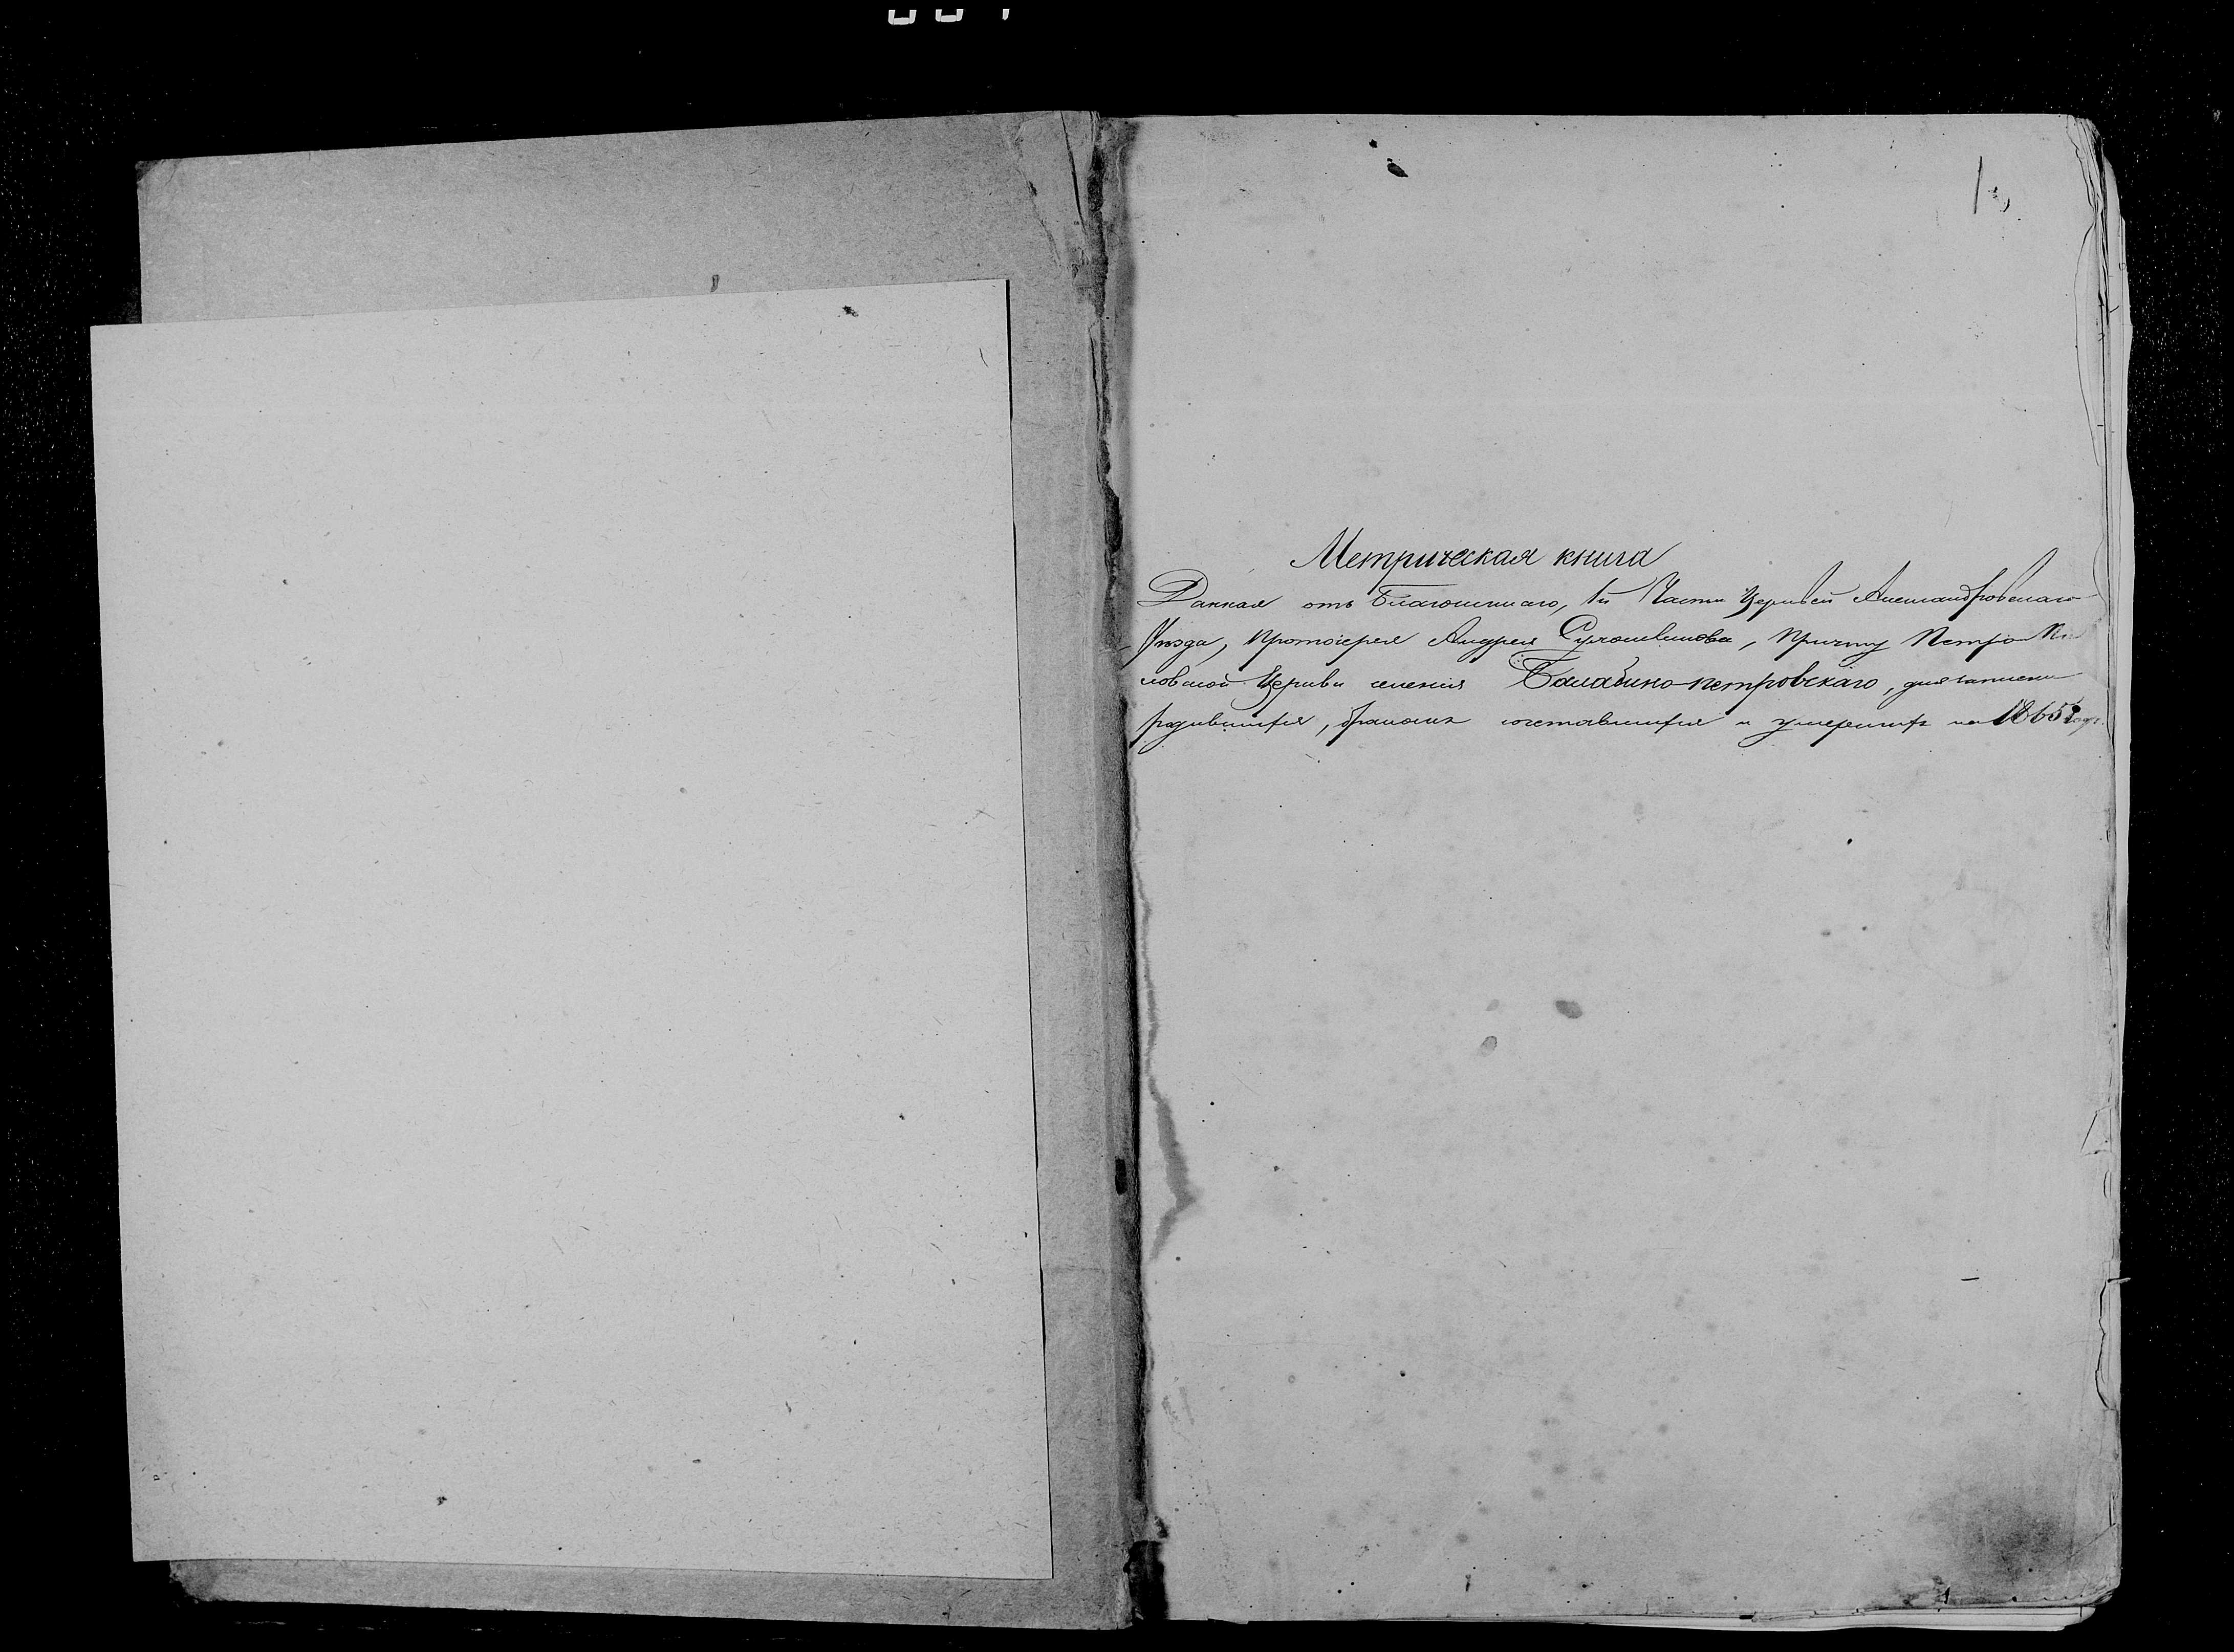 1
Метрическая книга
Данная отъ Благочиннаго, 1й Части Церквей Александровскаго
Уѣзда, Протоіерея Андрея, Причту Петро
ловской Церкви селенія Балабино-петровскаго, для записки
родившихся, бракомъ сочетавшихся и умершихъ на 1865 годъ.